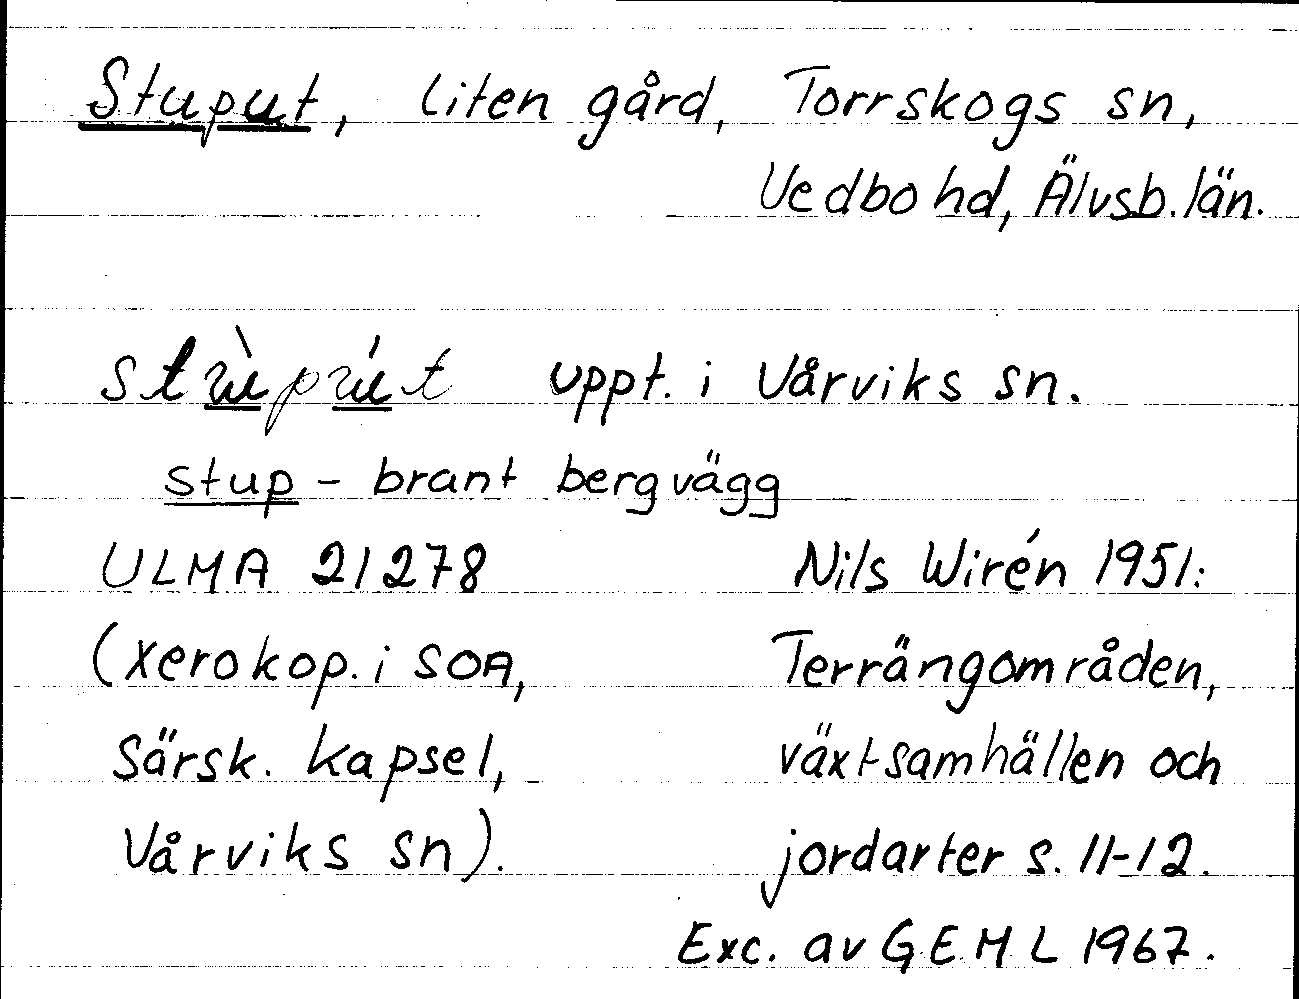 Stuput, liten gård, Torrskogs sn,
Vedbo hd, Älvsb. län.
uppt. i Vårviks sn.
stup - brant bergvägg
ULMA 21278
(Xerokop. i SOA,
Särsk. kapsel,
Vårviks sn).
Nils Wirén 1951:
Terrängområden,
växtsamhällen och
jordarter s. 11-12.
Exc. av GEML 1967.